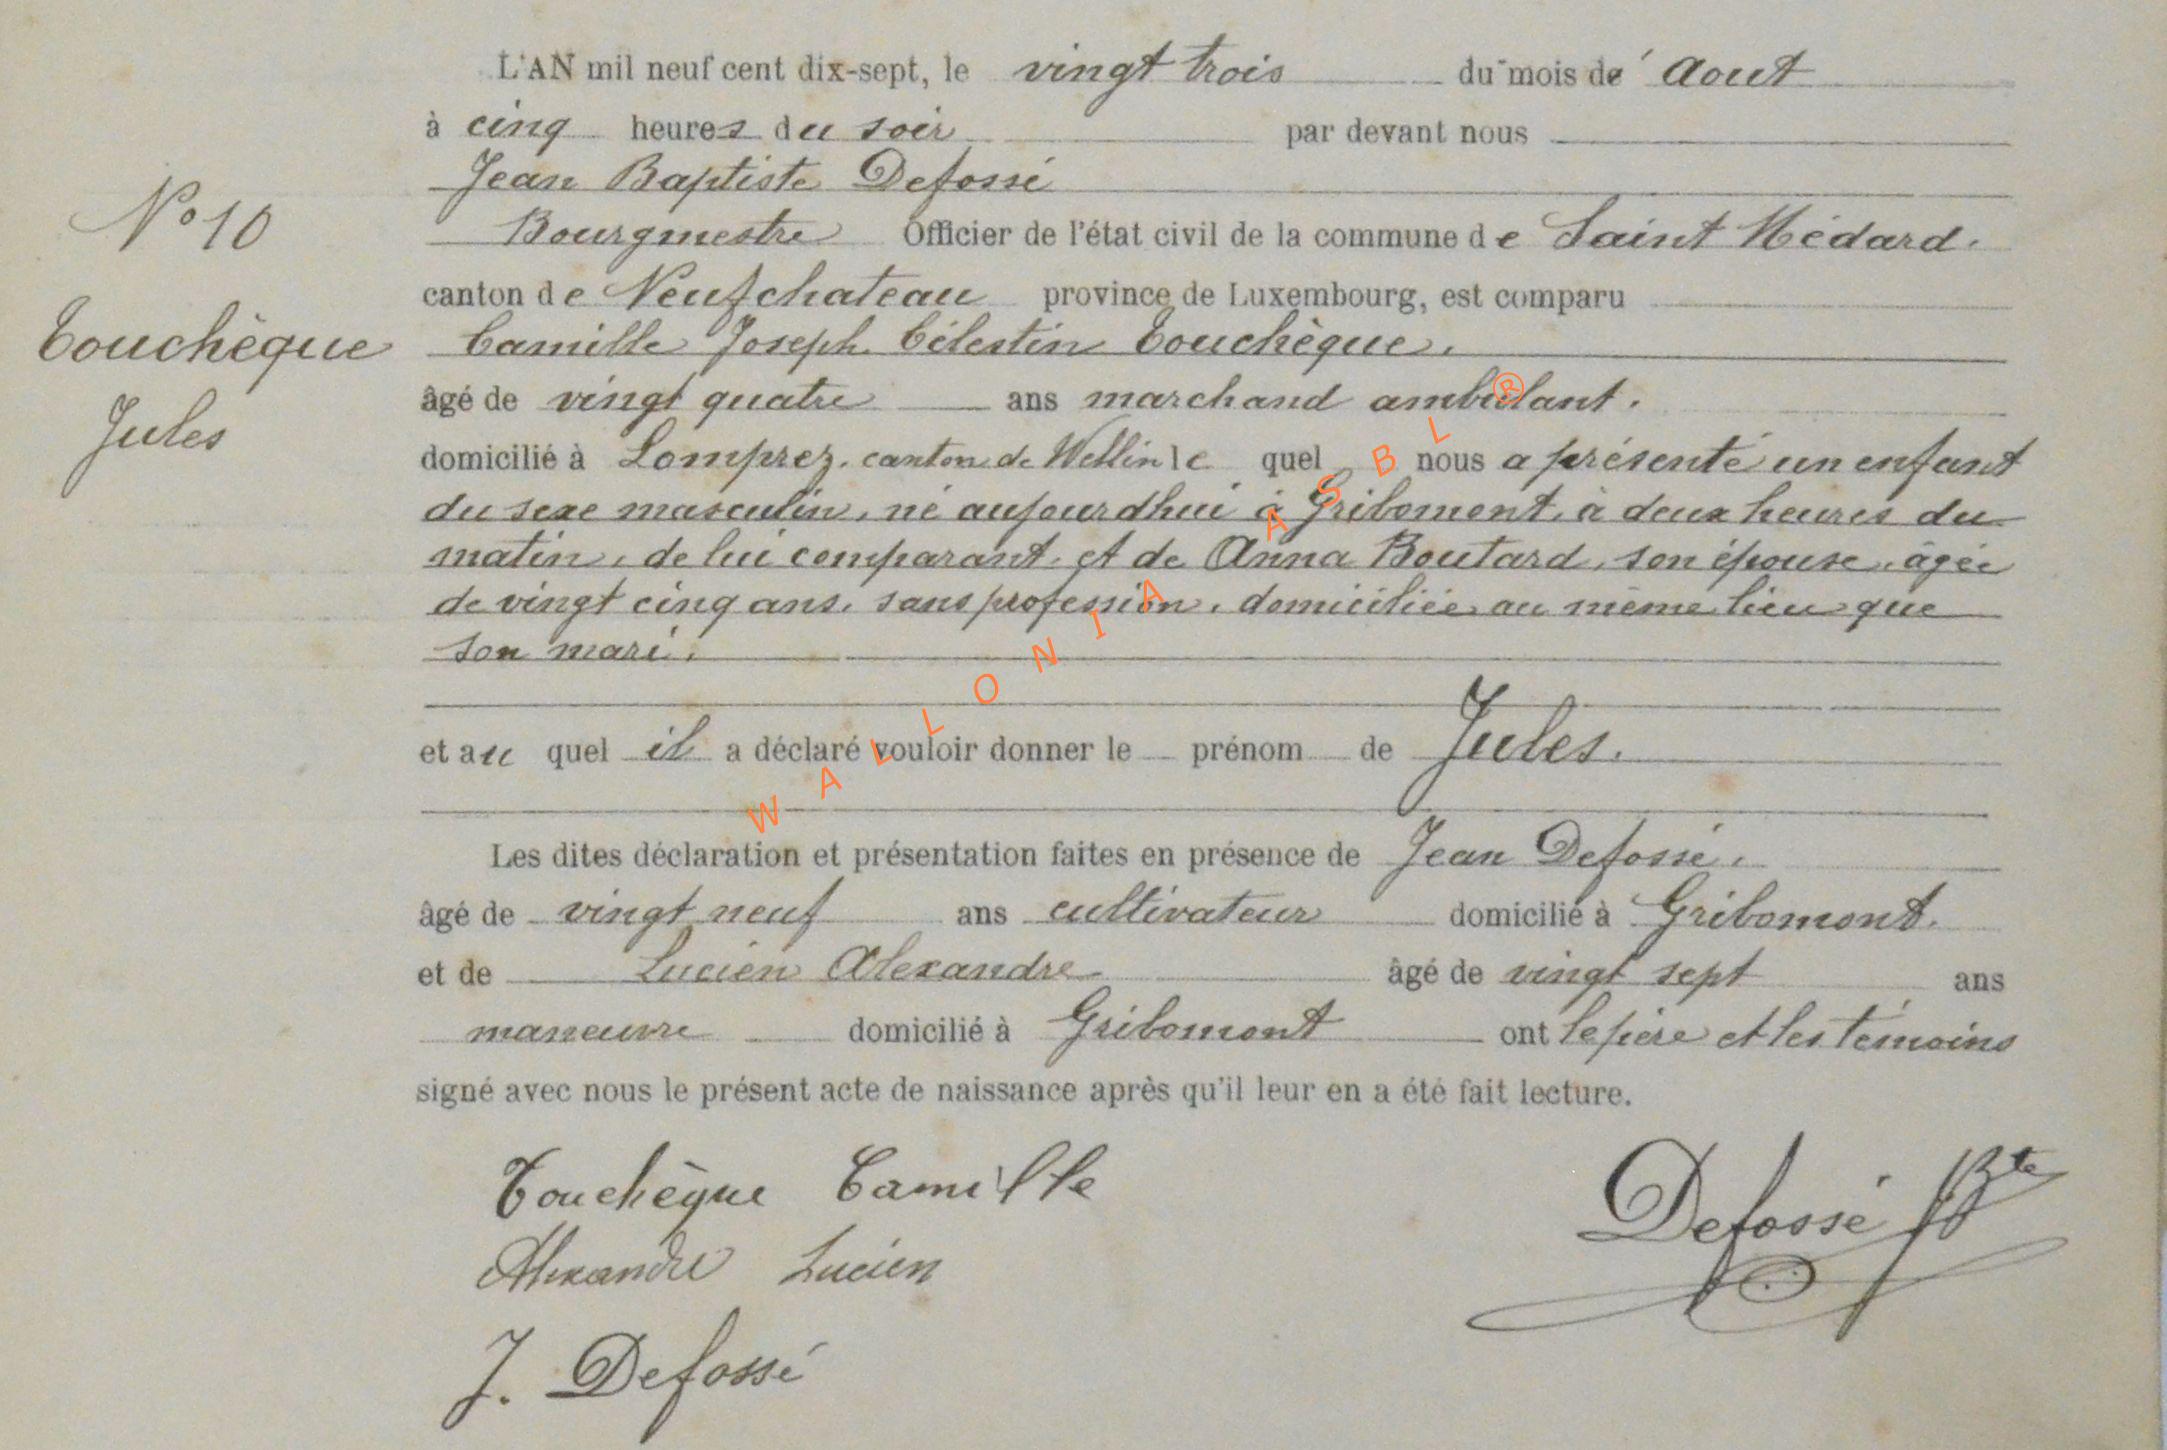 L'AN mil neuf cent dix-sept, le vingt trois du mois de Aout
à cinq heures du soir par devant nous
Jean Baptiste Defossé
N° 10
Bourgmestre Officier de l'état civil de la commune de Saint Médard.
canton de Neufchateau province de Luxembourg, est comparu
Touchèque
Camille Joseph Célestin Touchèque.
Jules
âgé de vingt quatre ans marchand ambulant.
domicilié à Lomprez. canton de Wellin le quel nous a présenté un enfant
du sexe masculin, né aujourdhui à Gribomont, à deux heures du
matin, de lui comparant et de Anna Boutard, son épouse, âgée
de vingt cinq ans, sans profession, domiciliée au même lieu que
son mari.
et au quel il a déclaré vouloir donner le prénom de Jules.
Les dites déclaration et présentation faites en présence de Jean Defossé.
âgé de vingt neuf ans cultivateur domicilié à Gribomont.
et de Lucien Alexandre âgé de vingt sept ans
maneuvre domicilié à Gribomont ont le père et les témoins
signé avec nous le présent acte de naissance après qu'il leur en a été fait lecture.
Touchèque Camille
Defossé JBte
Alexandre Lucien
J. Defossé
WALLONIA ASBL ®